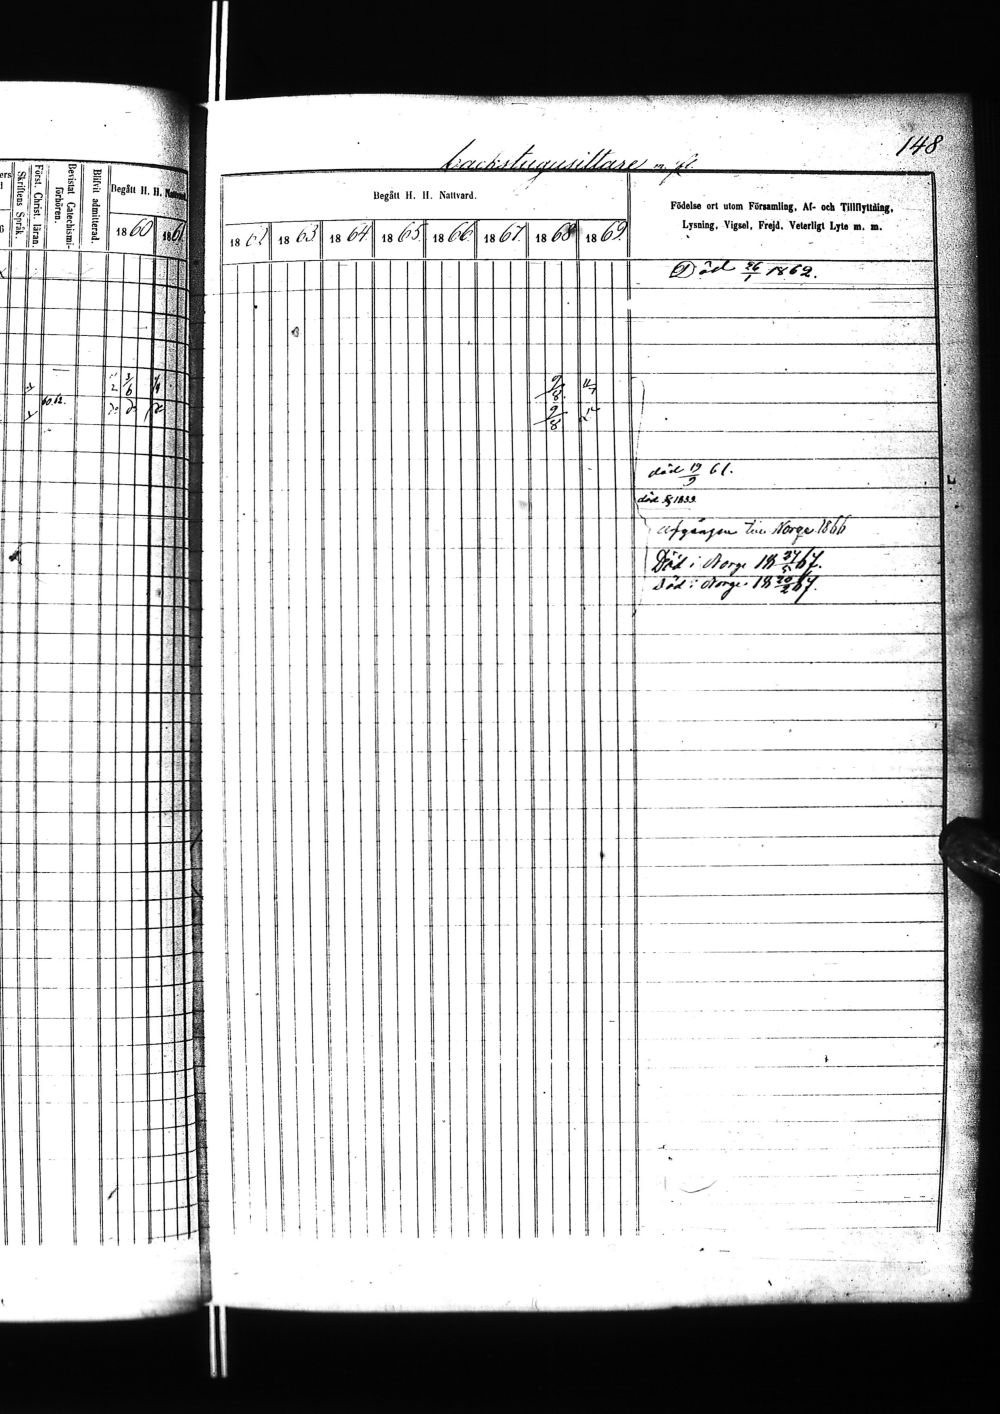 148
backstugusittare m. fl.
Skriftens Språk.
Först. Christ. läran.
Bevistat Catechismi-förhören.
Blifvit admitterad.
Begått H. H. Nattvard.
1860 1861
Begått H. H. Nattvard.
1862 1863 1864 1865 1866 1867 1868 1869
Födelse ort utom Församling, Af- och Tillflyttning,
Lysning, Vigsel, Frejd, Veterligt Lyte m. m.
Död 26/1 1862.
9/8
60.62.
9/8
död 19/9 61.
afgången till Norge 1866
Död i Norge 18 27/5 67.
Död i Norge 18 20/2 67.